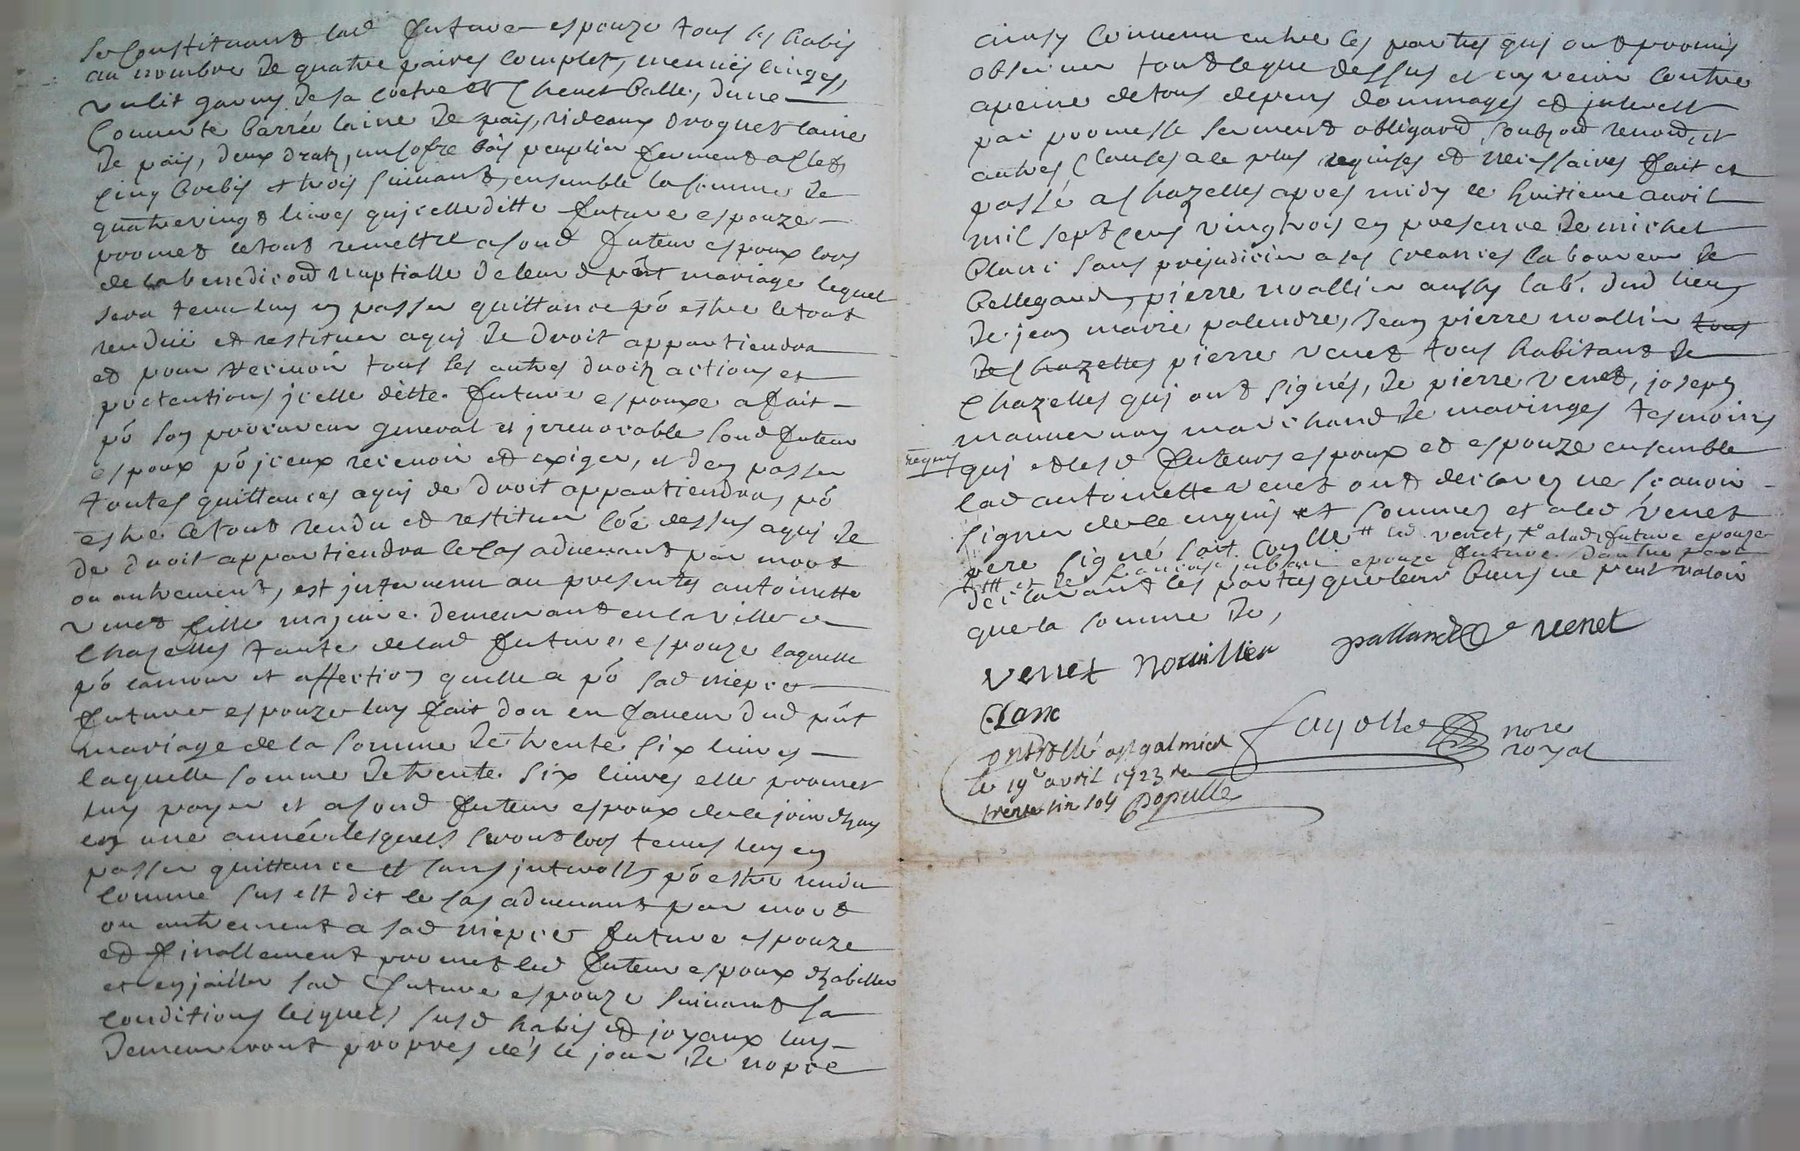 se Constituant lad future espouze tous ses habis
au nombre de quatre paires complet, menues linges,
un lit garny de sa coetre et Chevet balle, d'une
Couverte barrée laine de païs, rideaux droguet laine
de païs, deux draps, un cofre bois peuplier fermant a clef,
cinq brebis et trois suivants, ensemble la somme de
quatrevingt livres qu'icelle ditte future espouze
promet le tout remettre a soud futeur espoux lors
de la benediction nuptialle de leur d pñt mariage lequel
sera tenu luy en passer quittance pō estre le tout
rendüe et restituer a qui de droit appartiendra
et pour recevoir tous les autres droits actions et
pretentions jcelle ditte future espouze a fait
pō son procureur general et jrrevocable soud futeur
espoux pō jceux recevoir et exiger, et d'en passer
toutes quittances a qui de droit appartiendra, pō
estre le tout rendu et restituer cōe dessus a qui de
de droit appartiendra le cas advenant par mort
ou autrement, est jntervenu au presentes antoinette
venet fille majeure demeurant en la ville de
Chazelles tante de lad future espouze laquelle
pō l'amour et affection qu'elle a pō sad niepce
future espouze luy fait don en faveur dud pñt
mariage de la somme de trente six livres
laquelle somme de trente six livres elle promet
luy payer et a soud futeur espoux de ce jourdhuy
en une année lesquels seront lors tenus luy en
passer quittance et sans jnterestz pō estre rendu
comme sus est dit le cas advenant par mort
ou autrement a sad niepce future espouze
et finallement promet led futeur espoux dhabiller
et enjoiller sad future espouze suivant sa
conditions lesquels susd habis et joyaux luy
demeureront propres dés le jour de nopce
ainsy Convenu entre les parties qui ont promis
observer tout le que dessus et n'y venir contre
a peine de tous depens dommages et jnterest
par promesse serment obligaōn, soubzoñ renoñ, et
autres Clauses a ce plus requises et necessaires fait et
passé a Chazelles apres midy le huitieme avril
mil sept cens vingt trois en presence de michel
blanc sans prejudicier a ses creances laboureur de
bellegarde, pierre noallier aussy lab.r dud lieu,
de jean marie palendre, Jean pierre noallier tous
de Chazelles pierre venet tous habitant de
Chazelles qui ont signés, de pierre venet, joseph
mauvernay marchand de maringes tesmoins
requis
qui et lesd futeurs espoux et espouze ensemble
lad antoinette venet ont declarez ne scavoir
signer de ce enquis et sommez et a led venet
pere signé soit Conllé # led venet, a lad future epouze
declarant les parties que leur biens ne peut valoir
que la somme de,
venet noaillier pallandre venet
Clanc
Controllé a st galmier
le 19e avril 1723 re
trente six sols Populle
Fayolle nore
royal